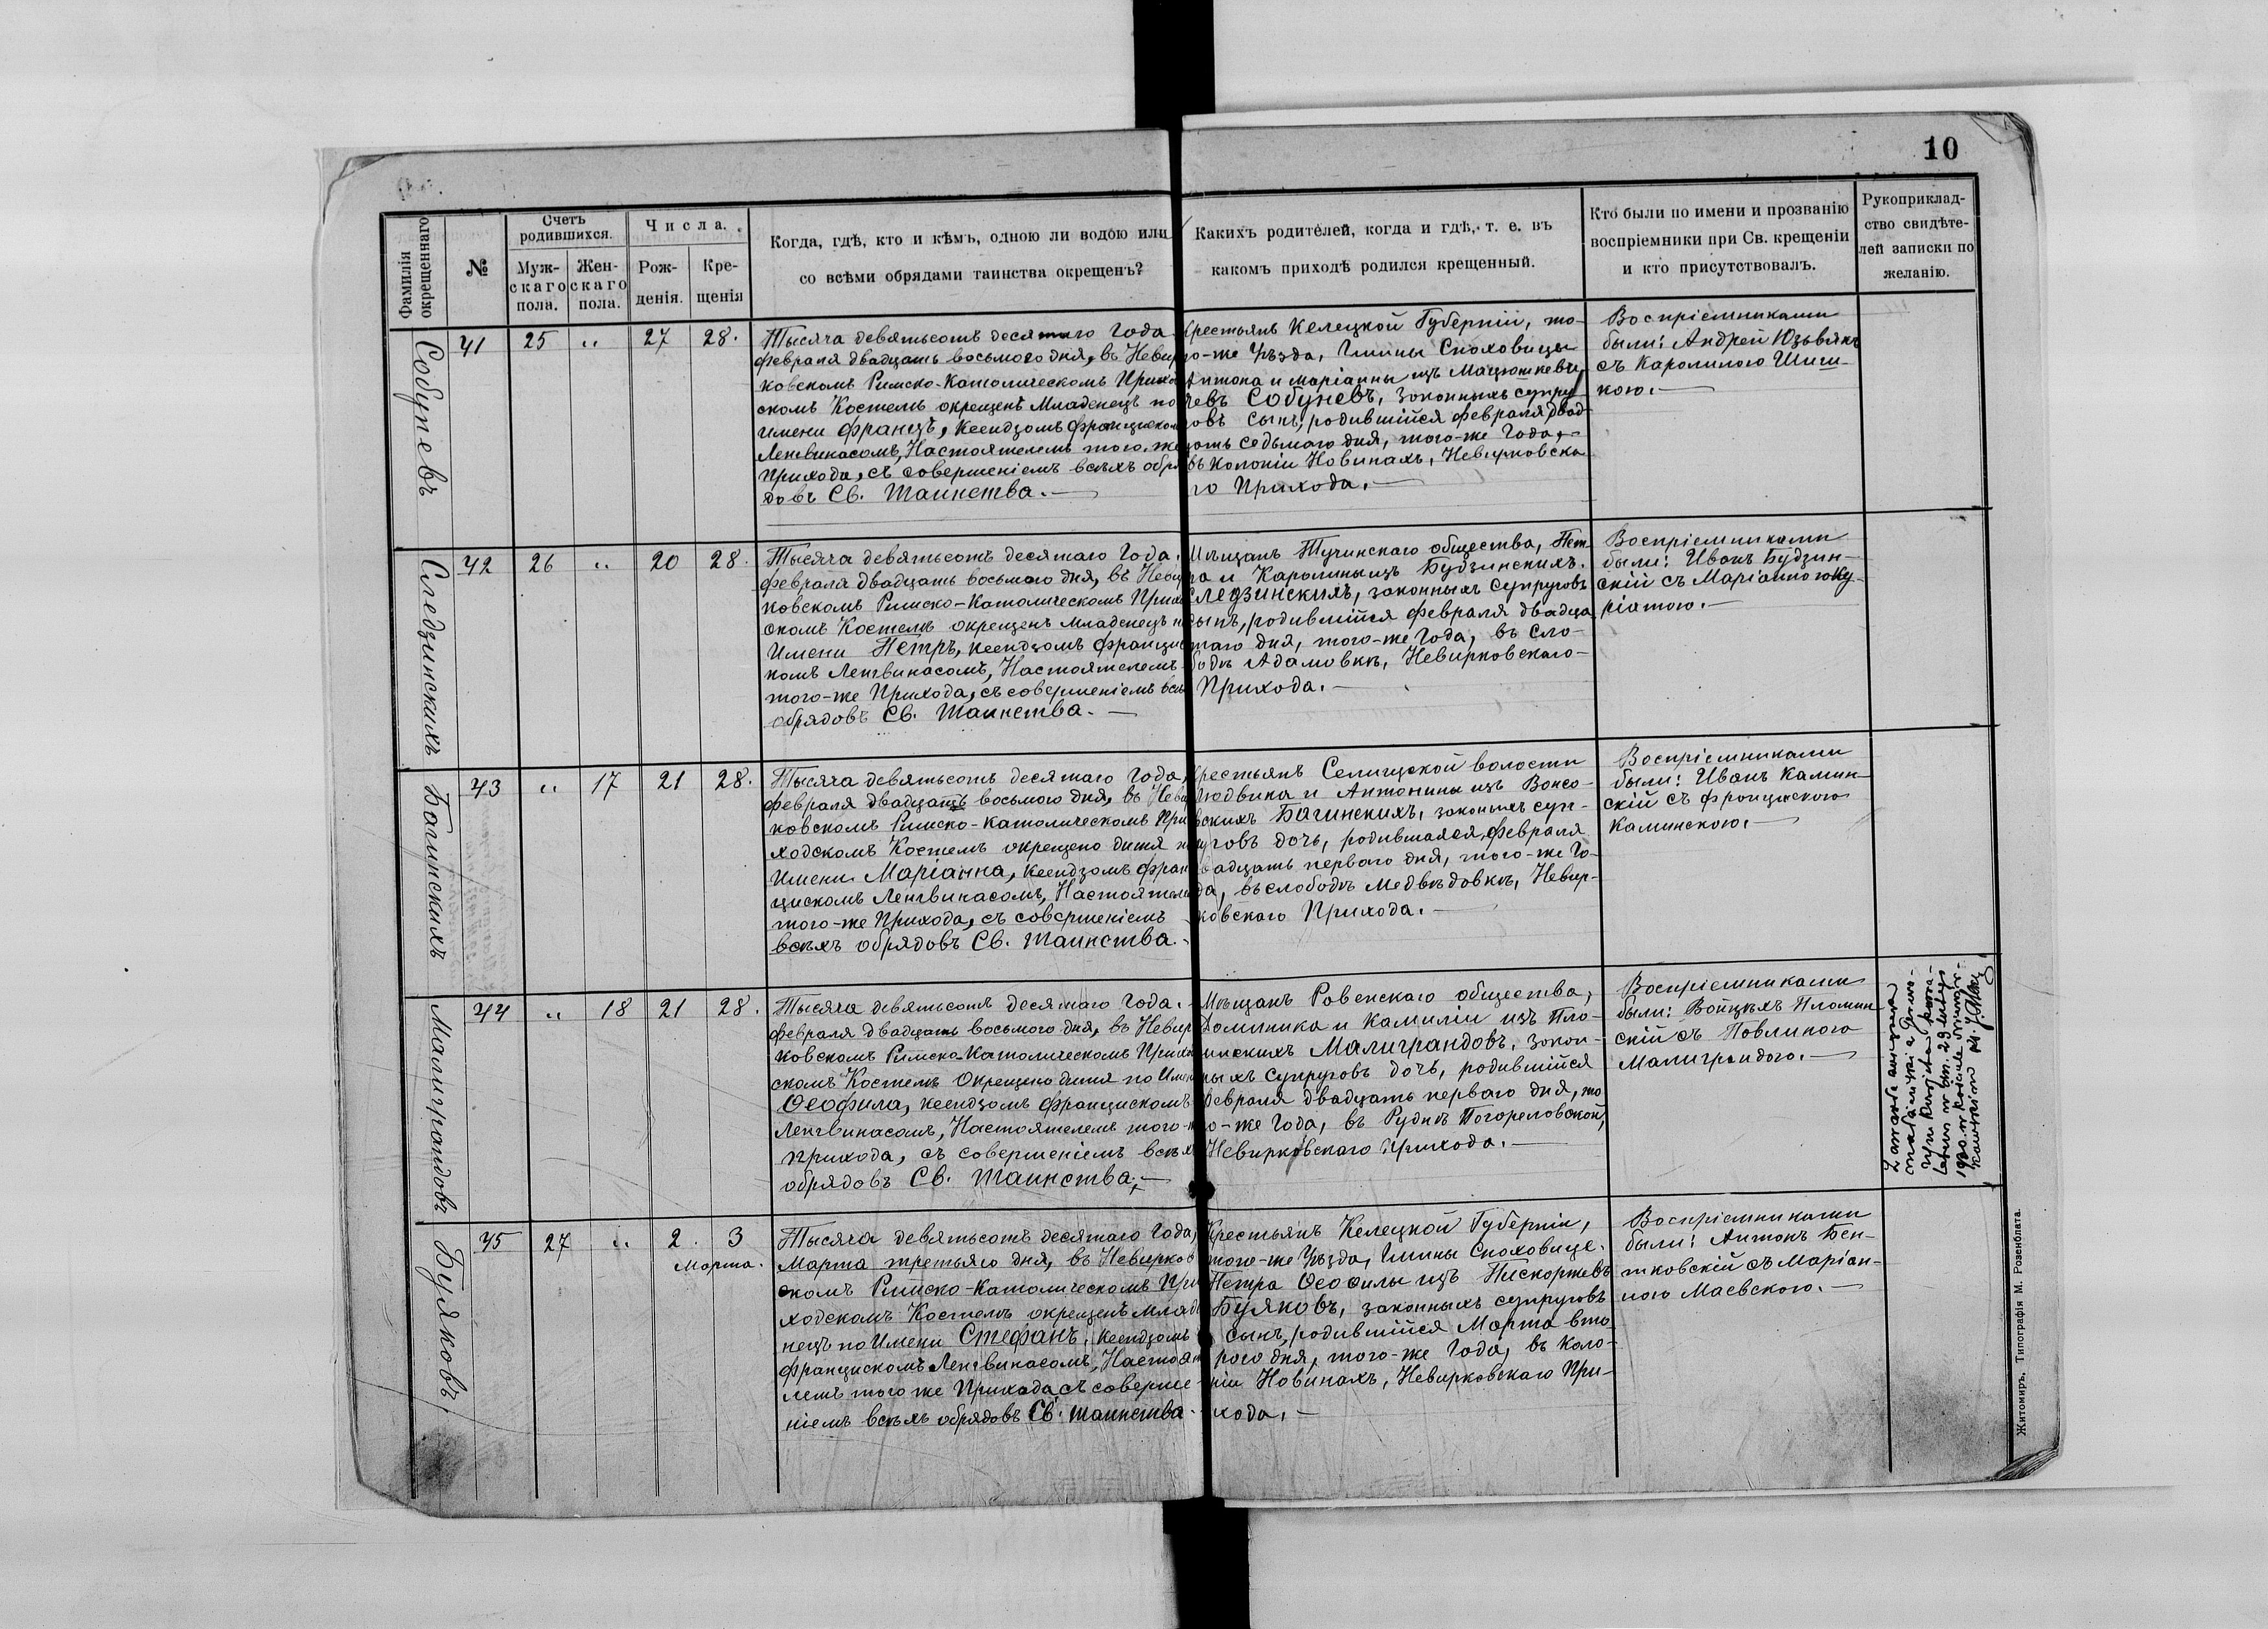 10
Фамилія окрещеннаго
№
Счетъ родившихся.
Муж-
скаго
пола.
Жен-
скаго
пола.
Числа.
Рож-
денія.
Кре-
щенія
Когда, гдѣ, кто и кѣмъ, одною ли водою или
со всѣми обрядами таинства окрещенъ?
Какихъ родителей, когда и гдѣ, т. е. въ
какомъ приходѣ родился крещенный.
Кто были по имени и прозванію
воспріемники при Св. крещеніи
и кто присутствовалъ.
Рукоприклад-
ство свидѣте-
лей записки по
желанію.
Собуневъ
41 25 „ 27 28.
Тысяча девятьсотъ десятаго Года
февраля двадцать восьмого дня, въ Невир
ковскомъ Римско-Католическомъ Прихо
скомъ Костелѣ окрещенъ Младенецъ по
имени Францъ, Ксендзомъ Франциском
Ленгвинасомъ, Настоятелемъ того-же
Прихода, съ совершеніемъ всѣхъ обря
довъ Св. Таинства.
Крестьянъ Келецкой Губерніи, то-
го-же Уѣзда, Гмины Сноховицы
Антона и Маріанны изъ Мацюшкеви
чевъ Собуневъ, законныхъ супру
говъ сынъ, родившійся февраля двад
цать седьмаго дня, того-же Года,
въ колоніи Новинахъ, Невирковска
го Прихода.
Воспріемниками
были: Андрей Юзьвякъ
съ Каролиною Шиш-
кою.
Следзинскихъ
42 26 „ 20 28.
Тысяча девятьсотъ десятаго Года.
февраля двадцать восьмого дня, въ Невир
ковскомъ Римско-Католическомъ Прихо
скомъ Костелѣ окрещенъ Младенецъ п
Имени Петръ, ксендзомъ Францис
комъ Ленгвинасомъ, Настоятелемъ
того-же Прихода, съ совершеніемъ всѣ
обрядовъ Св. Таинства.
Мѣщанъ Тучинскаго общества, Пет
ра и Каролины изъ Будзинскихъ
Следзинскихъ, законныхъ супруговъ
сынъ, родившійся февраля двадца
таго дня, того-же Года, въ Сло-
бодѣ Адамовкѣ, Невирковскаго
Прихода.
Воспріемниками
были: Иванъ Будзин-
скій съ Маріанною Ку-
ріатою.
Багинскихъ
43 „ 17 21 28.
Тысяча девятьсотъ десятаго Года,
февраля двадцать восьмого дня, въ Неви
ковскомъ Римско-Католическомъ При
ходскомъ Костелѣ окрещено дитя по
Имени Маріанна, ксендзомъ Фран
цискомъ Ленгвинасомъ, Настоятеле
того-же Прихода, съ совершеніемъ
всѣхъ обрядовъ Св. Таинства.
Крестьянъ Селищской волости
Людвика и Антонины изъ Вонсо-
вскихъ Багинскихъ, законыхъ суп-
руговъ дочь, родившаяся февраля
двадцать перваго дня, того-же Го-
да, въ слободѣ Медвѣдовкѣ, Невир-
ковскаго Прихода.
Воспріемниками
были: Иванъ Камин-
скій съ Францискою
Каминскою.
Малиграндовъ
44 „ 18 21 28.
Тысяча девятьсотъ десятаго Года.
февраля двадцать восьмого дня, въ Невир
ковскомъ Римско-Католическомъ Прихо
скомъ Костелѣ Окрещено дитя по Имени
Ѳеофила, ксендзомъ Францискомъ
Ленгвинасомъ, Настоятелемъ того-
Прихода, съ совершеніемъ всѣхъ
обрядовъ Св. Таинства.
Мѣщанъ Ровенскаго общества,
Доминика и Камиліи изъ Пло-
минскихъ Малиграндовъ, закон-
ныхъ супруговъ дочь, родившійся
февраля двадцать перваго дня, то
го-же Года, въ Руднѣ Погореловской,
Невирковскаго Прихода.
Воспріемниками
были: Войцѣхъ Пломин
скій съ Павлиною
Малиграндою.
Буяковъ.
45 27 „ 2. 3
Марта.
Тысяча девятьсотъ десятаго Года,
Марта третьяго дня, въ Невирков
скомъ Римско-Католическомъ При
ходскомъ Костелѣ окрещенъ млад
нецъ по Имени Стефанъ, ксендзомъ
Францискомъ Ленгвинасомъ, Настоят
лемъ того же Прихода, съ соверше-
ніемъ всѣхъ обрядовъ Св. Таинства.
Крестьянъ Келецкой Губерніи,
того-же Уѣзда, Гмины Сноховице.
Петра Ѳеофилы изъ Пискоржевъ
Буяковъ, законныхъ супруговъ
сынъ, родившійся Марта вто
рого дня, того-же Года, въ коло-
ніи Новинахъ, Невирковскаго При-
хода.
Воспріемниками
были: Антонъ Бен-
тковскій съ Маріан-
ною Маевскою.
Житомиръ, Типографія М. Розенблата.